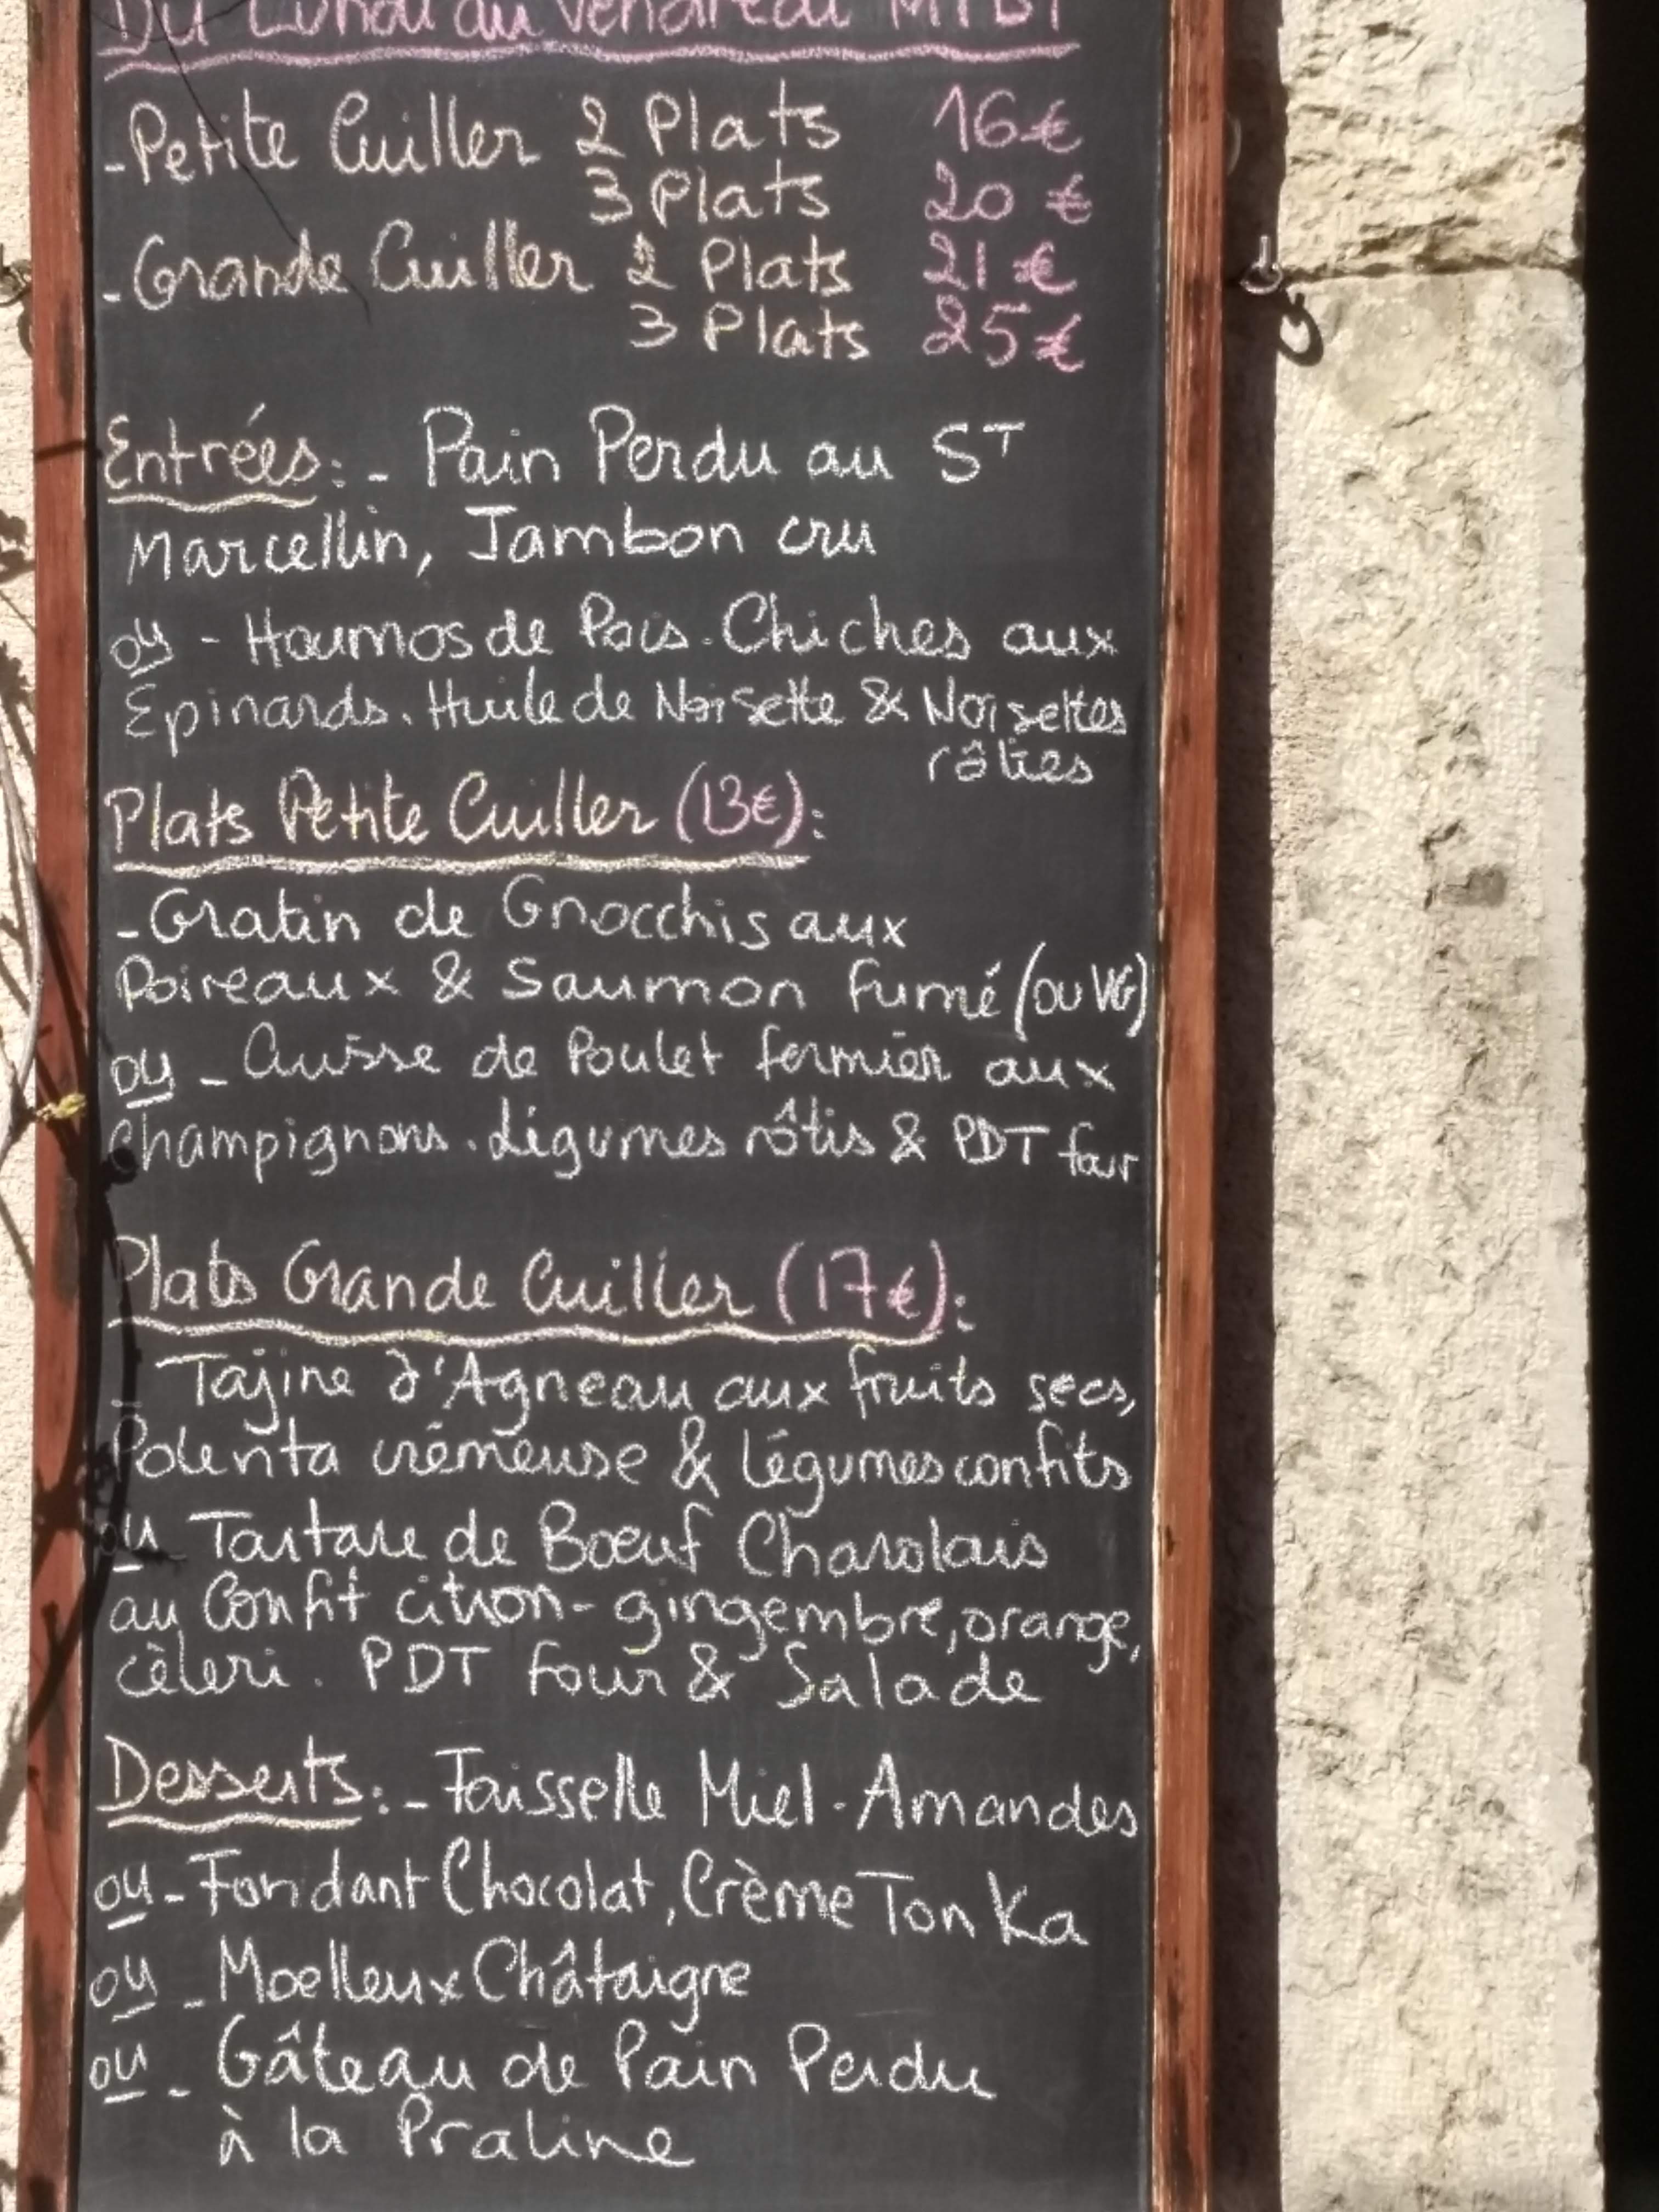 Du Lundi au Vendredi MIDI
-Petite Cuiller 2 Plats 16€
3 Plats 20 €
-Grande Cuiller 2 Plats 21€
3 Plats 25€
Entrées: - Pain Perdu au ST
Marcellin, Jambon cru
ou - Houmos de Pois-Chiches aux
Epinards. Huile de Noisette & Noisettes
rôties
Plats Petite Cuiller (13€):
-Gratin de Gnocchis aux
Poireaux & Saumon fumé (ou VG)
ou - Cuisse de Poulet fermier aux
champignons. Légumes rôtis & PDT four
Plats Grande Cuiller (17€):
- Tajine d'Agneau aux fruits secs,
Polenta crémeuse & légumes confits
ou Tartare de Bœuf Charolais
au Confit citron-gingembre, orange,
cèleri. PDT four & Salade
Desserts: - Faisselle Miel-Amandes
ou - Fondant Chocolat, Crème TonKa
ou - Moelleux Châtaigne
ou - Gâteau de Pain Perdu
à la Praline